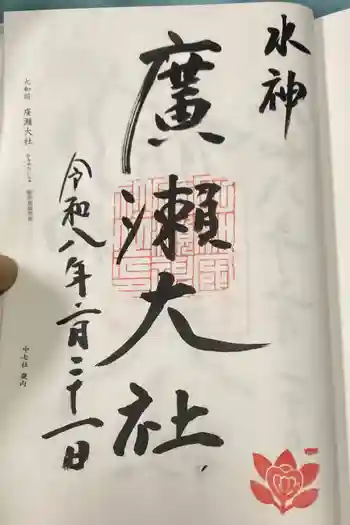 水神
廣瀬大社
令和八年二月二十一日
大和國 廣瀬大社
中七社 龍内